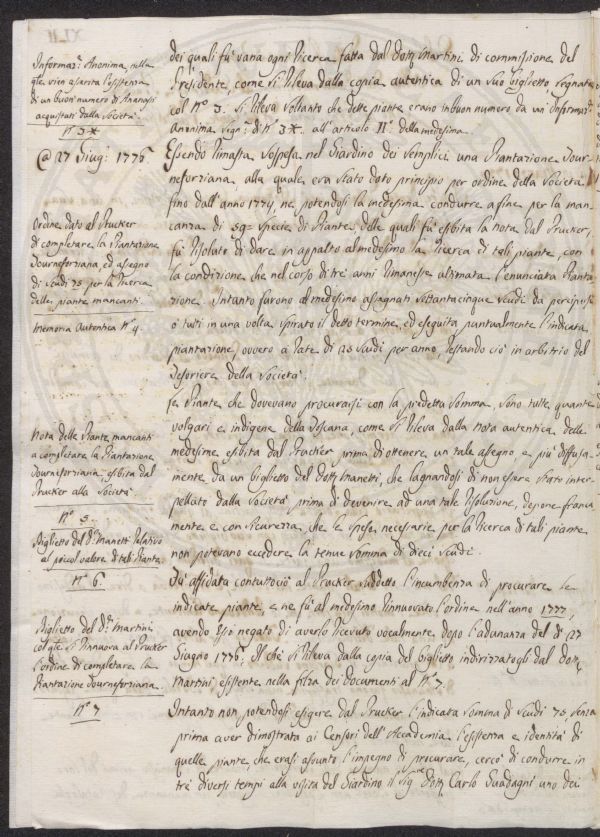 Informaz.e Anonima nella
q.le vien asserita l'esistenza
di un buon numero di Ananassi
acquistati dalla Società.
N.° 3*
@ 27 Giug: 1776.
Ordine dato al Prucker
di completare la Piantazione
Tourneforziana, ed assegno
di Scudi 75 per la Ricerca
delle piante mancanti.
Memoria Autentica N.° 4.
Nota delle Piante mancanti
a completare la Piantazione
Tourneforziana esibita dal
Prucker alla Società
N.° 5.
Biglietto del D.r Manetti Relativo
al piccol valore di tali Piante.
N.° 6.
Biglietto del D.r Martini
col q.le si Rinnuova al Prucker
l'ordine di completare la
Piantazione Tourneforziana.
N.° 7
dei quali fù vana ogni Ricerca fatta dal Dott.r Martini di commissione del
Presidente, come si Rileva dalla copia autentica di un suo biglietto segnata
col N.° 3. Si Rileva soltanto che dette piante erano in buon numero da un' Informaz.e
Anonima segn.a di N.° 3*. all'articolo II.° della medesima.
Essendo Rimasta sospesa nel Giardino dei Semplici una Piantazione Tour-
neforziana alla quale era stato dato principio per ordine della Società
fino dall'anno 1774, ne potendosi la medesima condurre a fine per la man-
canza di 59= specie di Piante, delle quali fù esibita la nota dal Prucker,
fù Risoluto di dare in appalto al medesimo la Ricerca di tali piante, con
la condizione che nel corso di tre anni Rimanesse ultimata l'enunciata Pianta-
zione. Intanto furono al medesimo assegnati settantacinque Scudi da percipersi
ò tutti in una volta spirato il detto termine, ed eseguita puntualmente l'indicata
piantazione, ovvero a Rate di 25 Scudi per anno, Restando ciò in arbitrio del
Tesoriere della Società.
Le Piante che dovevano procurarsi con la predetta somma, sono tutte quante
volgari e indigene della Toscana, come si Rileva dalla nota autentica delle
medesime esibita dal Prucker prima di ottenere un tale assegno, e più diffusa-
mente da un biglietto del Dott.r Manetti, che lagnandosi di non essere stato inter-
pellato dalla Società prima di devenire ad una tale Risoluzione, depone franca-
mente e con sicurezza, che le spese necessarie per la Ricerca di tali piante
non potevano eccedere la tenue somma di dieci Scudi.
Fù affidata contuttociò al Prucker suddetto l'incumbenza di procurare le
indicate piante, e ne fù al medesimo Rinnuovato l'ordine nell'anno 1777,
avendo Esso negato di averlo Ricevuto vocalmente, dopo l'adunanza del dì 27
Giugno 1776. Il che si Rileva dalla copia del biglietto indirizzatogli dal Dott.r
Martini esistente nella filza dei documenti al N.° 7.
Intanto non potendosi esigere dal Prucker l'indicata somma di Scudi 75, senza
prima aver dimostrata ai Censori dell'Accademia l'esistenza e identità di
quelle piante, che erasi assunto l'impegno di procurare, cercò di condurre in
tré diversi tempi alla visita del Giardino il Sig.re Dott.r Carlo Guadagni uno dei